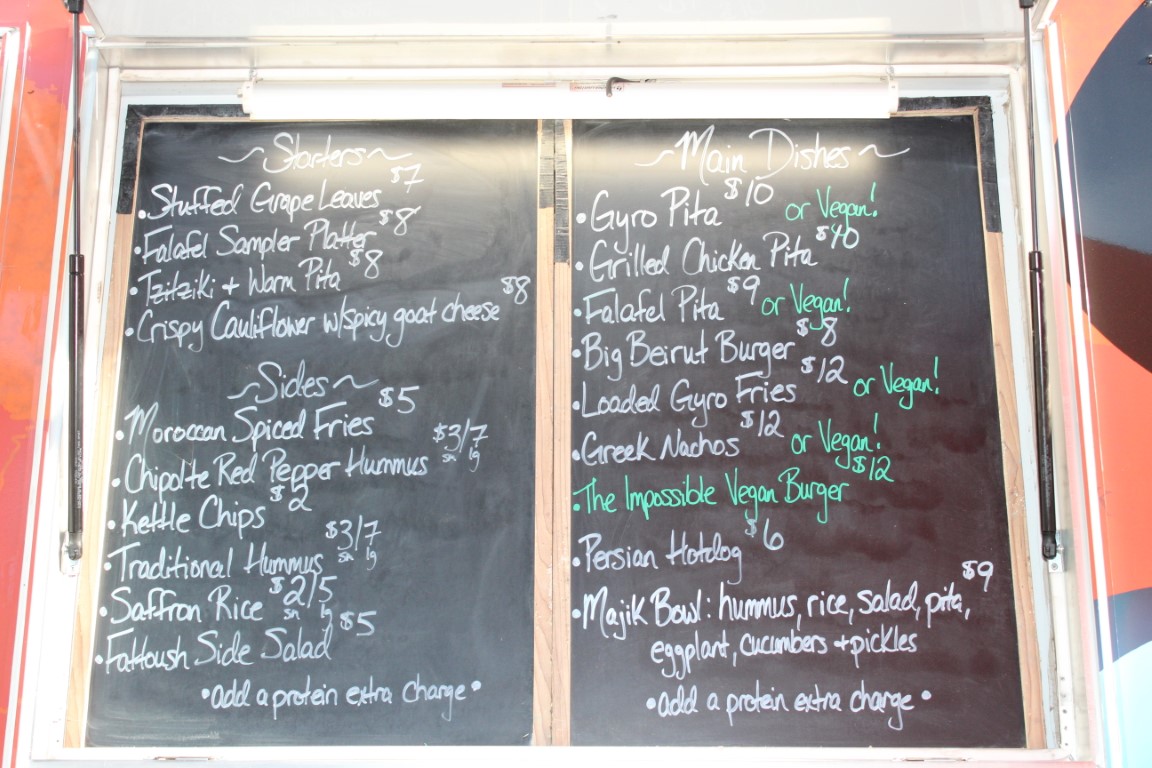 ~Starters~
•Stuffed Grape Leaves $7
•Falafel Sampler Platter $8
•Tzitziki + Warm Pita $8
•Crispy Cauliflower w/spicy goat cheese $8
~Sides~
•Moroccan Spiced Fries $5
•Chipolte Red Pepper Hummus $3/7
sm lg
•Kettle Chips $2
•Traditional Hummus $3/7
sm lg
•Saffron Rice $2/5
sm lg
•Fattoush Side Salad $5
•add a protein extra charge•
~Main Dishes~
•Gyro Pita $10 or Vegan!
•Grilled Chicken Pita $10
•Falafel Pita $9 or Vegan!
•Big Beirut Burger $8
•Loaded Gyro Fries $12 or Vegan!
•Greek Nachos $12 or Vegan!
•The Impossible Vegan Burger $12
•Persian Hotdog $6
•Majik Bowl: hummus, rice, salad, pita, $9
eggplant, cucumbers + pickles
•add a protein extra charge•